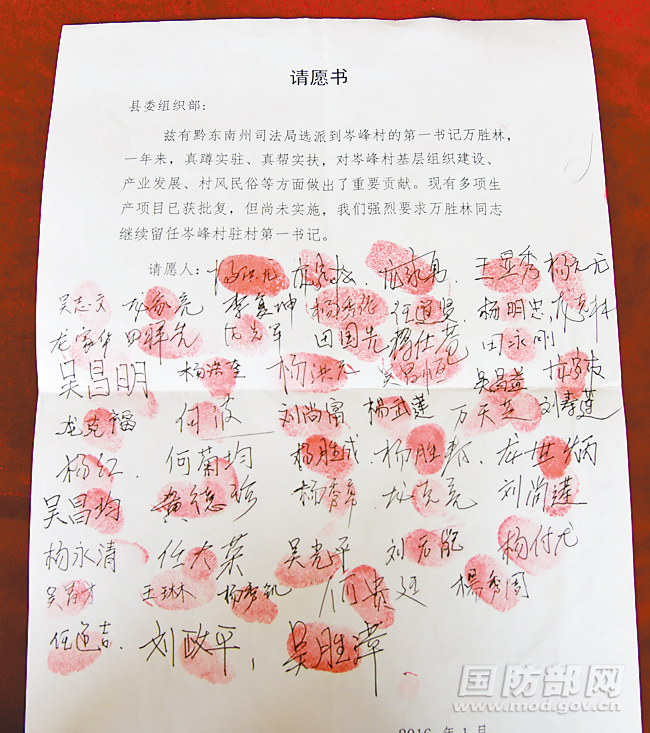 请愿书
县委组织部：
兹有黔东南州司法局选派到岑峰村的第一书记万胜林，
一年来，真蹲实驻、真帮实扶，对岑峰村基层组织建设、
产业发展、村风民俗等方面做出了重要贡献。现有多项生
产项目已获批复，但尚未实施，我们强烈要求万胜林同志
继续留任岑峰村驻村第一书记。
请愿人：杨洪元 王显秀
吴志文 龙家亮 李金坤 杨秀征 任道贤 杨明忠 龙克林
龙家华 田祥先 田国先 杨仕菊 田冰刚
吴昌明 杨洪奎 杨洪元 吴昌恒 吴昌益
龙克福 何波 刘尚富 杨武莲 万天芝 刘寿莲
杨红 何菊均 杨胜成 杨胜春 龙世炳
吴昌均 黄德珍 杨秀军 龙克亮 刘尚莲
杨永清 任大荣 吴光平 刘宏能 杨付龙
王琳木 何贵廷 杨秀周
任道吉 刘政平， 吴胜萍
2016 年 1 月
国防部网
www.mod.gov.cn